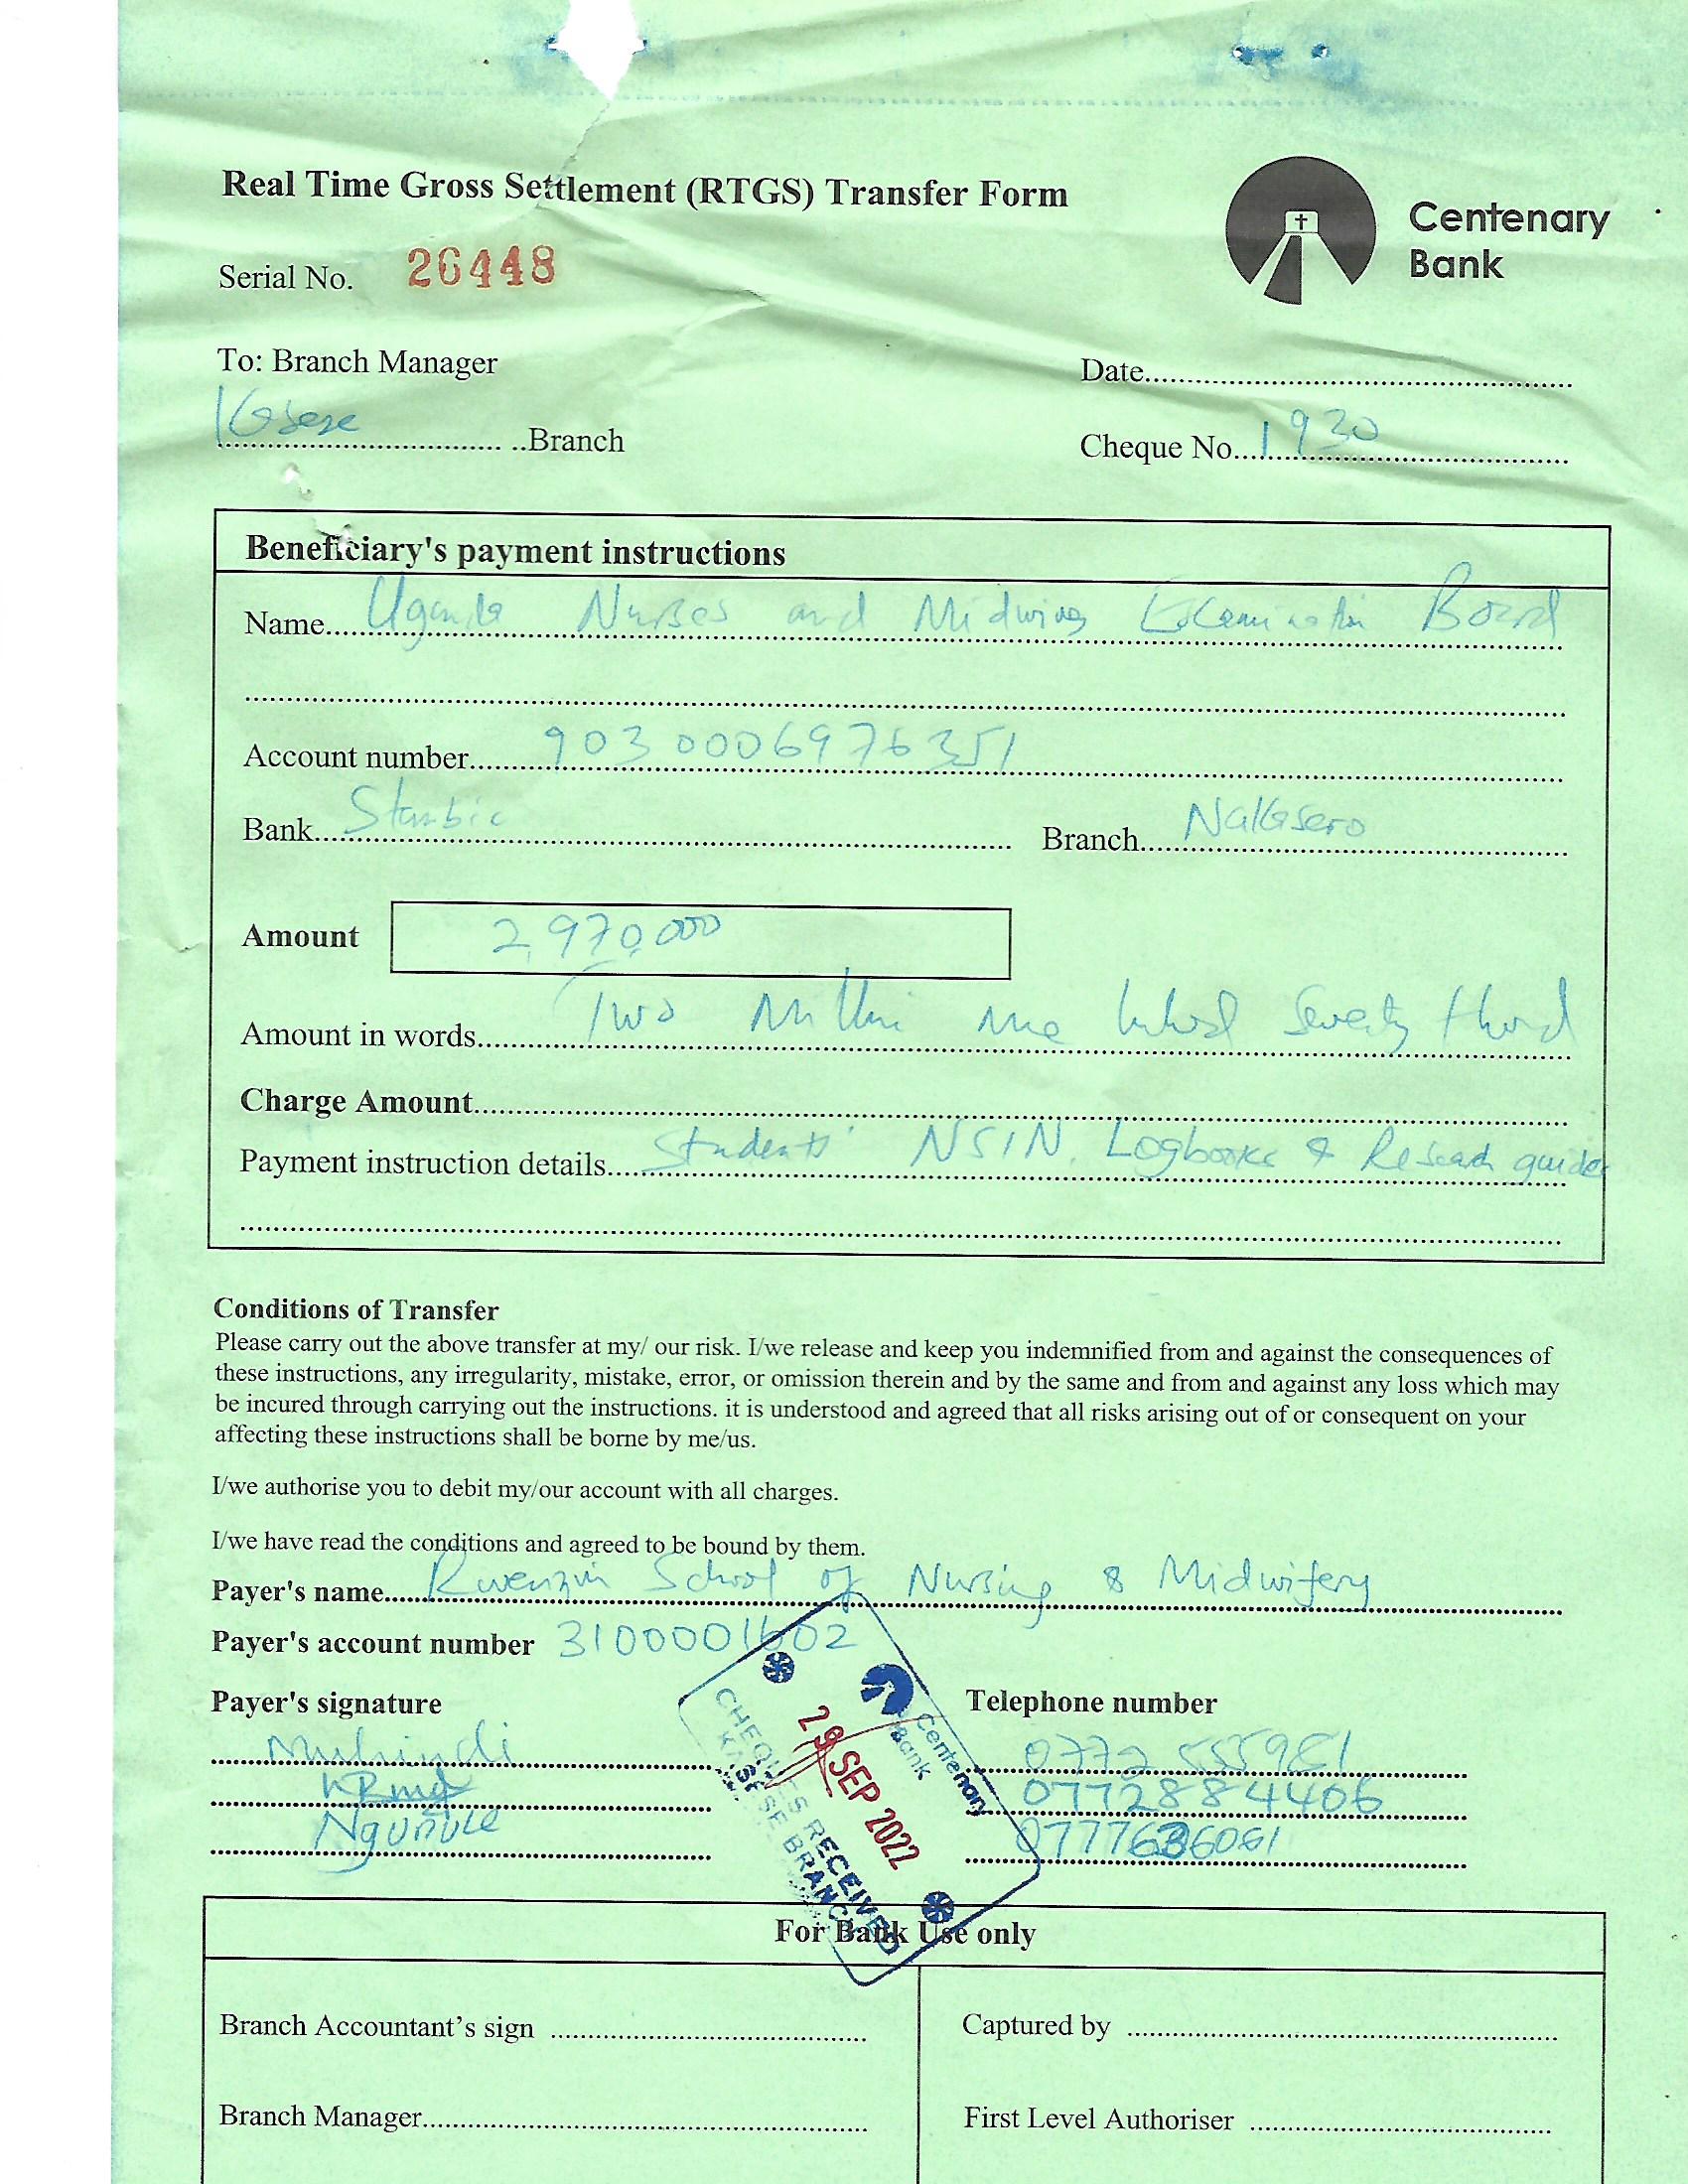 Real Time Gross Settlement (RTGS) Transfer Form
Centenary
Bank
Serial No. 26448
To: Branch Manager
Date
Kasese Branch
Cheque No. 1930
Beneficiary's payment instructions
Name Uganda Nurses and Midwives Examination Board
Account number 9030006976351
Bank Stanbic Branch Nakasero
Amount 2,970,000
Amount in words Two Million nine hundred Seventy thousd
Charge Amount
Payment instruction details Students' NSIN, Logbooks & Research guides
Conditions of Transfer
Please carry out the above transfer at my/ our risk. I/we release and keep you indemnified from and against the consequences of
these instructions, any irregularity, mistake, error, or omission therein and by the same and from and against any loss which may
be incured through carrying out the instructions. it is understood and agreed that all risks arising out of or consequent on your
affecting these instructions shall be borne by me/us.
I/we authorise you to debit my/our account with all charges.
I/we have read the conditions and agreed to be bound by them.
Payer's name Rwenzori School of Nursing & Midwifery
Payer's account number 3100001602
Payer's signature
Telephone number
Muhindi
0772 555981
0772884406
Ngunune
Centenary
Bank
29 SEP 2022
CHEQUES RECEIVED
KASESE BRANCH
For Bank Use only
Branch Accountant's sign
Captured by
Branch Manager
First Level Authoriser